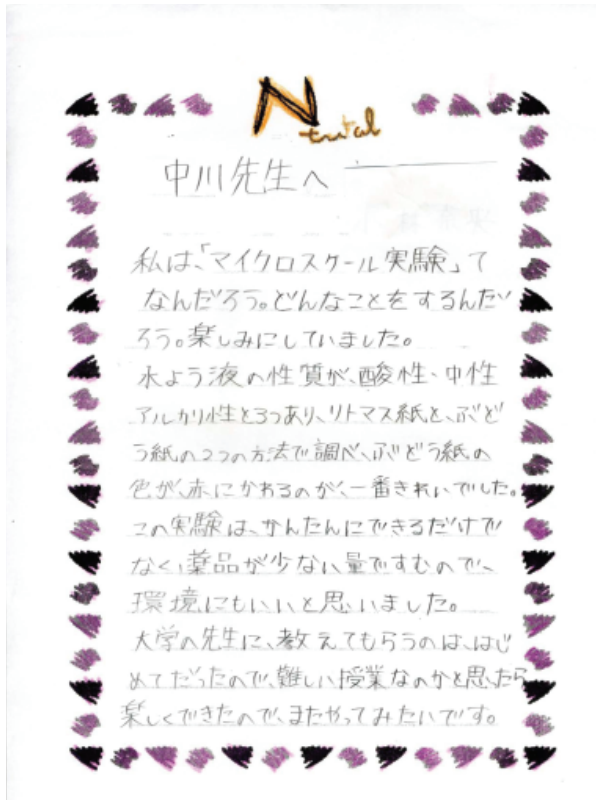 N
tutal
中川先生へ
私は、「マイクロスケール実験」て
なんだろう。どんなことをするんだ
ろう。楽しみにしていました。
水よう液の性質が、酸性、中性
アルカリ性と3つあり、リトマス紙と、ぶど
う紙の2つの方法で調べ、ぶどう紙の
色が、赤にかわるのが、一番きれいでした。
この実験は、かんたんにできるだけで
なく、薬品が少ない量ですむので、
環境にもいいと思いました。
大学の先生に、教えてもらうのは、はじ
めてだったので、難しい授業なのかと思ったら
楽しくできたので、またやってみたいです。